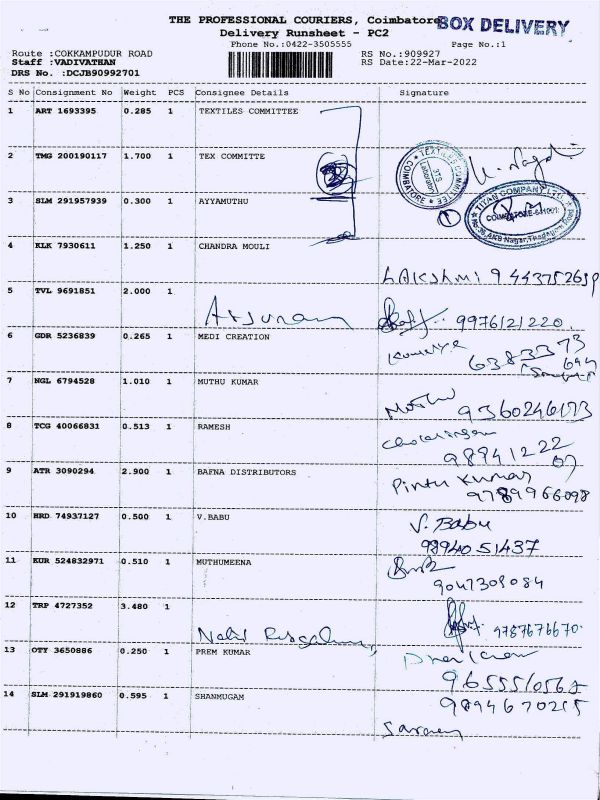 THE PROFESSIONAL COURIERS, Coimbatore
BOX DELIVERY
Delivery Runsheet - PC2
Phone No.:0422-3505555
Page No.:1
Route :COKKAMPUDUR ROAD
RS No.:909927
Staff :VADIVATHAN
RS Date:22-Mar-2022
DRS No. :DCJB90992701
S No Consignment No Weight PCS Consignee Details Signature
1 ART 1693395 0.285 1 TEXTILES COMMITTEE
2 TMG 200190117 1.700 1 TEX COMMITTE
TEXTILES COMMITTEE
COIMBATORE
Laboratory
3 SLM 291957939 0.300 1 AYYAMUTHU
TITAN COMPANY LTD.
4 KLK 7930611 1.250 1 CHANDRA MOULI
LAKSHMI
5 TVL 9691851 2.000 1
Arjunan
9976121220.
6 GDR 5236839 0.265 1 MEDI CREATION
7 NGL 6794528 1.010 1 MUTHU KUMAR
9360246173
8 TCG 40066831 0.513 1 RAMESH
9894122207
9 ATR 3090294 2.900 1 BAFNA DISTRIBUTORS
Pintu Kumar
9789966098
10 HRD 74937127 0.500 1 V.BABU
V. Babu
9894051437
11 KUR 524832971 0.510 1 MUTHUMEENA
9047309084
12 TRP 4727352 3.480 1
9787676670.
13 OTY 3650886 0.250 1 PREM KUMAR
14 SLM 291919860 0.595 1 SHANMUGAM
9894670215